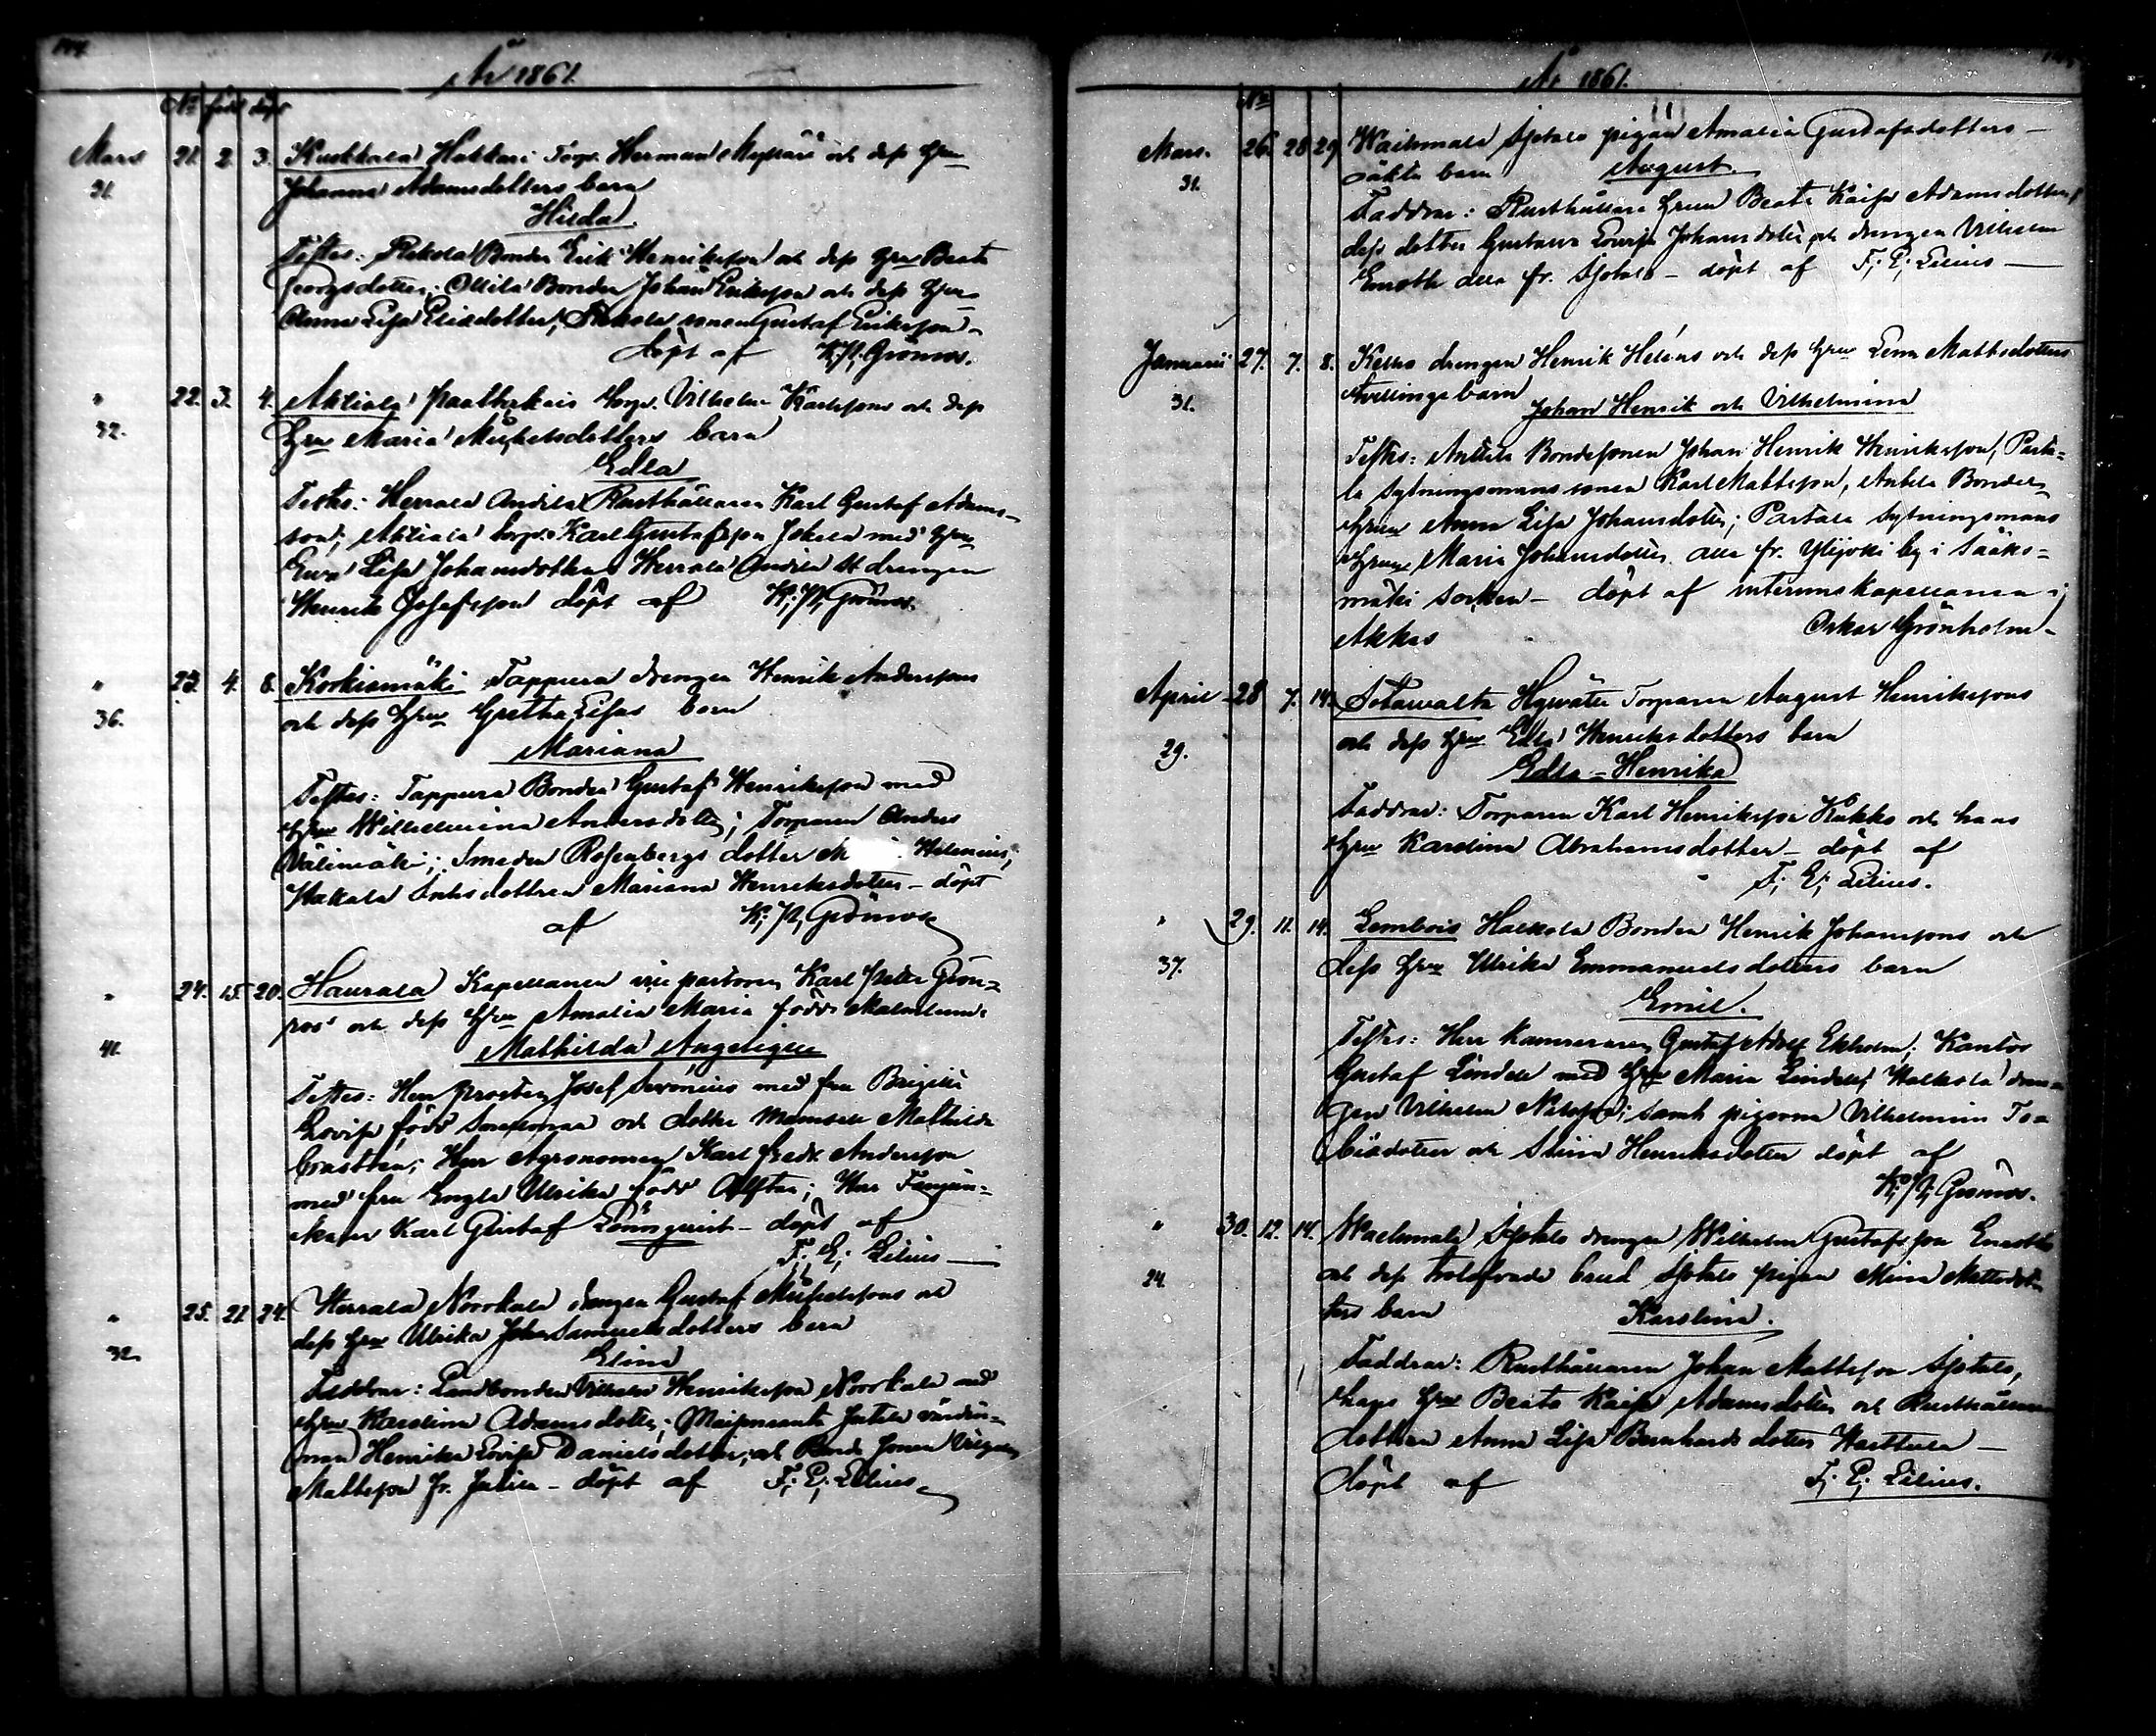 144
År 1861.
No född döpt
Mars 21. 2. 3. Kuckkola Hakkari Torp. Herman och dess Hru
31. Johanna Adamsdotters barn
Hilda
Testes: Bonden Erik Henriksson och dess Hru Beata
Georgsdotter; Ollila Bonden Johan Eriksson och dess Hru
Anna Lisa Eliadotter; sonen Gustaf Eriksson
döpt af K. P. Grönroos.
" 22. 3. 4. Aktiala Torp. Vilhelm Karlssons och dess
32. Hru Maria Michelsdotters barn
Edla
Testes: Herrala Andila Rusthållaren Karl Gustaf Adams-
son; Aktiala torp. Karl Gustafsson Jokela med Hru
Eva Lisa Johansdotter Herrala Andila drengen
Henrik Josefsson döpt af K. P. Grönroos.
" 23. 4. 8. Korkiamäki Tappura drengen Henrik Anderssons
36. och dess Hru Gretha Lisas barn
Mariana
Testes: Tappura Bonden Gustaf Henriksson med
Hru Wilhelmina Andersdotter; Torparen Anders
Välimäki; Smeden Rosenbergs dotter M Helenius;
Hakala dottren Mariana Henriksdotter – döpt
af K. P. Grönroos
" 24. 15. 20. Haurala Kapellanen vice pastoren Karl Peter Grön-
41. roos och dess Hru Amalia Maria född
Mathilda Angelique
Testes: Herr Prosten Josef med fru Brigitta
Lovisa född och dotter Mamsell Mathilda
Herr Agronomen Karl Fredr. Andersson
med fru Engla Ulrika född Alftan; Herr
Karl Gustaf Lönnquist – döpt af
F. E. Lilius
" 25. 21. 24. Herrala Norrkala drengen Gustaf Michelssons och
32. dess Hru Ulrika Johan Samuelsdotters barn
Elina
Faddrar: Landbonden Vilhelm Henriksson Norrkala med
Hru Karolina Adamsdotter; Jutila värdin-
nan Henrika Lovisa Danielsdotter; och Bonde sonen
Mattsson fr. Jutila – döpt af F. E. Lilius
År 1861.
No
Mars. 26. 28 29 Sjotala pigan Amalia Gustafsdotters –
31. oäkta barn August.
Faddrar: Rusthållare Hrun Beata Kaisa Adamsdotter,
dess dotter Gustava Lovisa Johansdotter och drengen Vilhelm
Enroth alla fr. Sjotala – döpt af F. E. Lilius
Januarii 27. 7. 8. drengen Henrik Heléns och dess Hru Lena Mattsdotters
31. tvillinge barn
Johan Henrik och Vilhelmina
Testes: Anttila Bondesonen Johan Henrik Henriksson, Parta-
la sytningsmans sonen Karl Mattsson, Anttila Bonden
Hrun Anna Lisa Johansdotter; Partala sytningsmans
Hrun Maria Johansdotter alla fr. Ylijoki by i Sääks-
mäki socken – döpt af interimskapellanen i
Akkas Oskar Grönholm
April 28 7. 14. Torparen August Henrikssons
29. och dess Hru Edla Henriksdotters barn
Edla – Henrika
Faddrar: Torparen Karl Henriksson Kukko och hans
Hru Karolina Abrahamsdotter – döpt af
F. E. Lilius.
" 29. 11. 14. Lembois Halkola Bonden Henrik Johanssons och
37. dess Hru Ulrika Emmanuelsdotters barn
Emil.
Testes: Herr Kamreraren Gustaf Adolf Ekholm; Kantor
Gustaf Lindell med Hru Maria Lindell; Halkola dren-
gen Vilhelm; samt pigorna Vilhelmina To-
biasdotter och Stina Henriksdotter döpt af
K. P. Grönroos.
" 30. 12. 14. Sjotala drengen Wilhelm Gustafsson Enroth
24. och dess trolofvade brud Sjotala pigan Miina Mattsdot-
ters barn Karolina.
Faddrar: Rusthållaren Johan Mattsson Sjotala,
hans Hru Beata Kaisa Adamsdotter och Rusthållare
dottren Anna Lisa Bernhardsdotter Harttula –
döpt af F. E. Lilius.